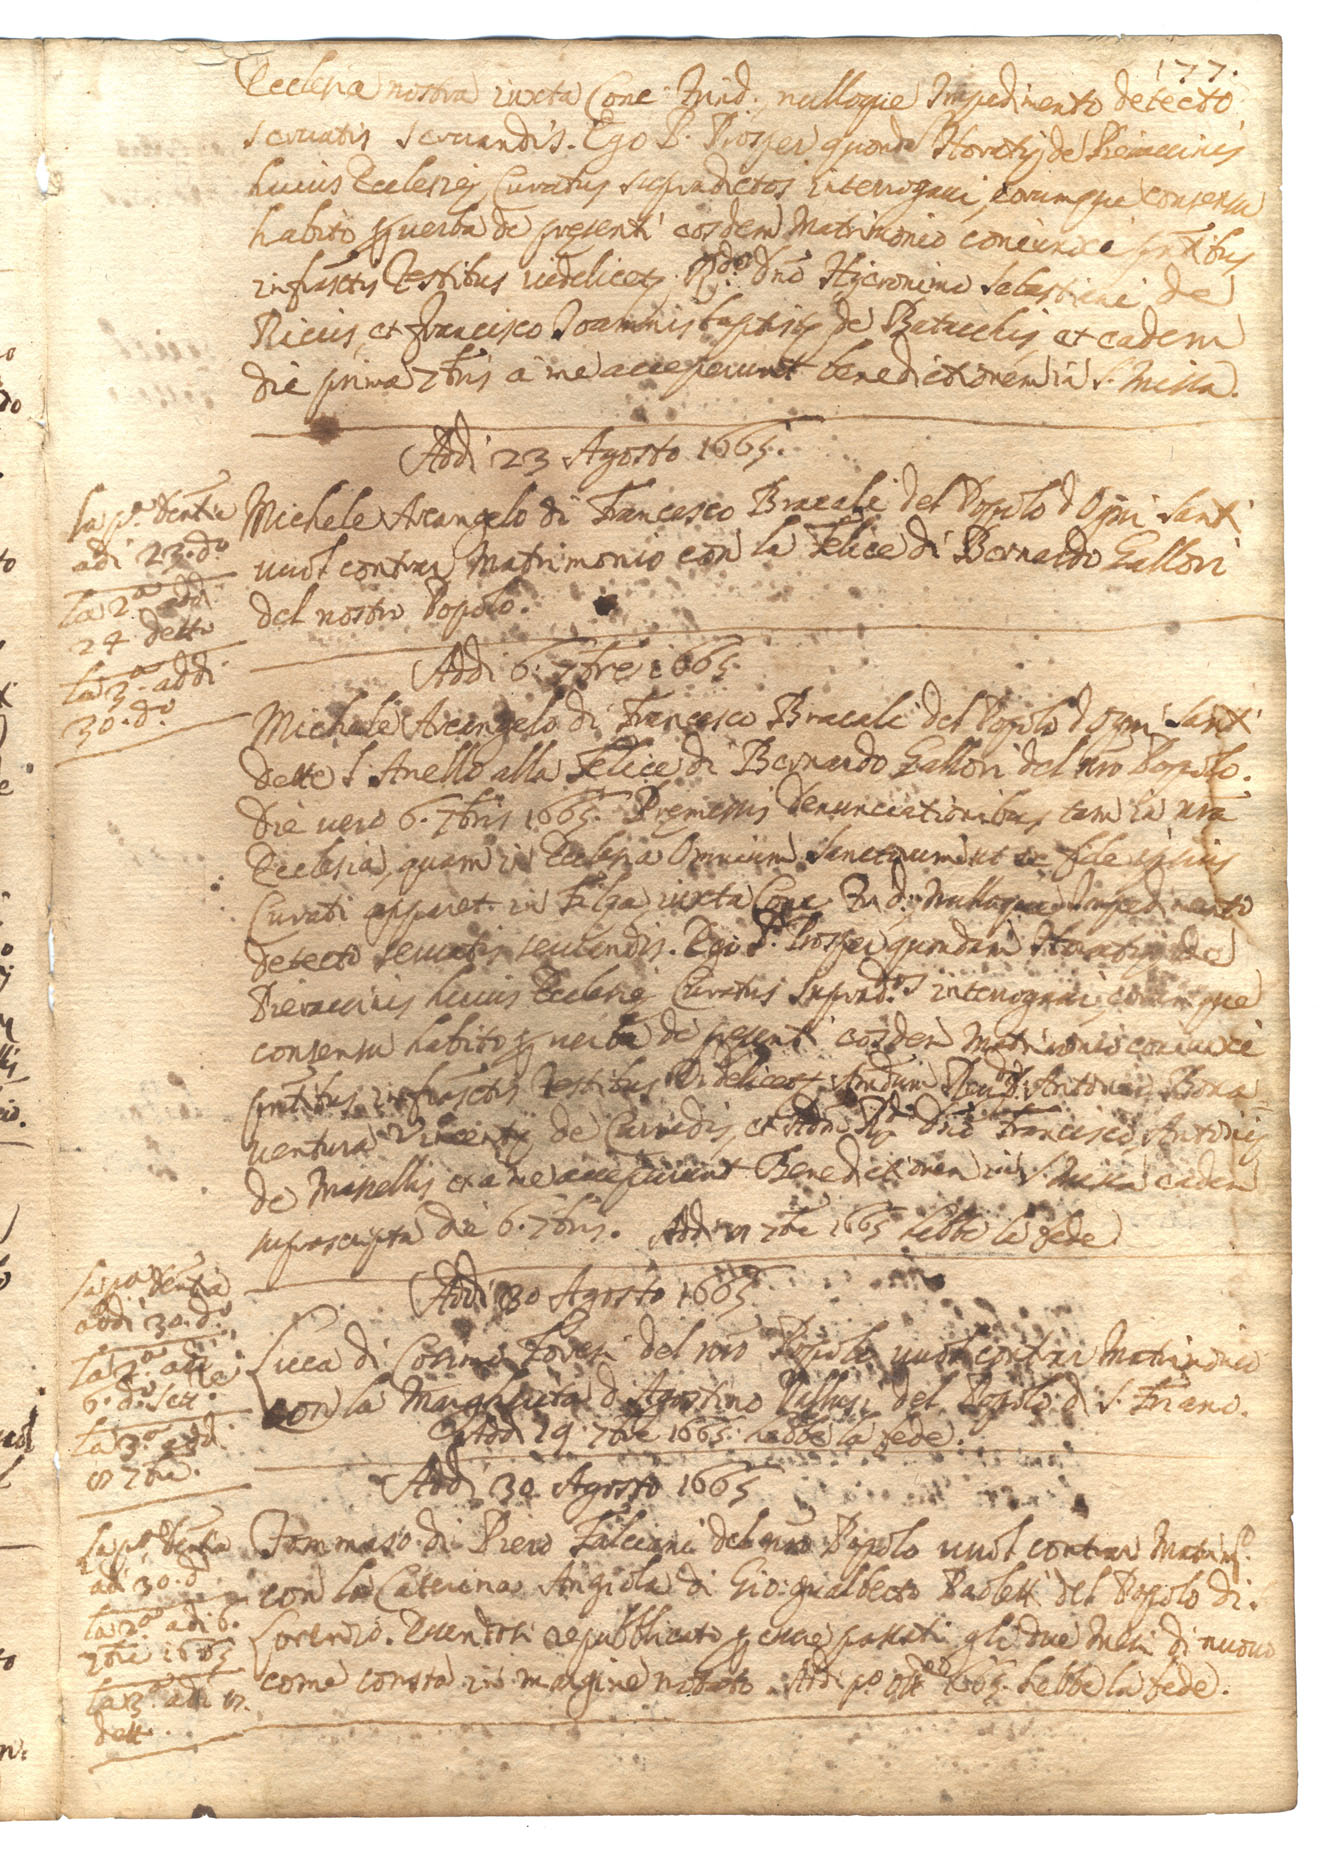 177.
Ecclesia nostra iuxta Conc: Trid: nulloque Impedimento detecto
servatis servandis. Ego P. Prosper quond. Horatij de Pieraccinis
huius Ecclesię Curatus supradictos interrogavi, eorumque consensu
habito p verba de presenti eosdem Matrimonio coniunxi pntibus
infrasctis Testibus videlicet Rdo. Dno Hijeronimo Sebastiani de
Riciis, et Francisco Joannisbaptistę de Batacchis, et eadem
die prima 7bris a me acceperunt benedictionem in S. Missa.
Addi 23 Agosto 1665.
La pa. dentia
adi 23. do
La 2a add
24 detto
La 3a. addi
30. do.
Michele Arcangelo di Francesco Bracali del Popolo d'Ogni Santi
vuol contrar Matrimonio con la Felice di Bernardo Gallori
del nostro Popolo.
Addi 6. 7bre 1665.
Michele Arcangelo di Francesco Bracali del Popolo d'Ogni Santi
dette l'Anello alla Felice di Bernardo Gallori del nro Popolo.
Die vero 6. 7bris 1665. Premissis denunciationibus tam in nra
Ecclesia, quam in Ecclesia Omnium Sanctorum ut ex fide ipsius
Curati apparet in Filza, iuxta Conc. Trid: Nulloque Impedimento
detecto servatis servandis. Ego P. Prosper quondam Horatij de
Pieraccinis huius Ecclesię Curatus suprad.os interrogavi, eorumque
consensu habito p verba de presenti eosdem Matrimonio coniunxi
pntibus infrasctis Testibus Videlicet Antonio Bona
ventura Vincentij de Dno Francisco Antonij
de Masellis et a me acceperunt Benedictionem in S. Missa eadem
suprascripta die 6. 7bris. Addi 17 7bre 1665 hebbe la fede
Addi 30 Agosto 1665
La pa dentia
addi 30. do
La 2a adi
6. do
La 3a add
17 7bre.
Lucca di Cosimo del nro Popolo vuol contrar Matrimonio
con la Margherita d'Agostino del Popolo di S. Friano.
Addi 19. 7bre 1665. hebbe la fede.
Addi 30 Agosto 1665
La pa. dentia
adi 30. d
La 2a adi 6.
7bre 1665
La 3a adi 17.
dett.
Tommaso di Piero Falciani del nro Popolo vuol contrar Matrimo.
con la Caterina Angiola di Gio: gualberto Paoletti del Popolo di S.
Lorenzo. Essendosi repubblicato p esser passati gli due mesi di nuovo
come consta in margine notato. Adi po. 8bre 1665. hebbe la fede.